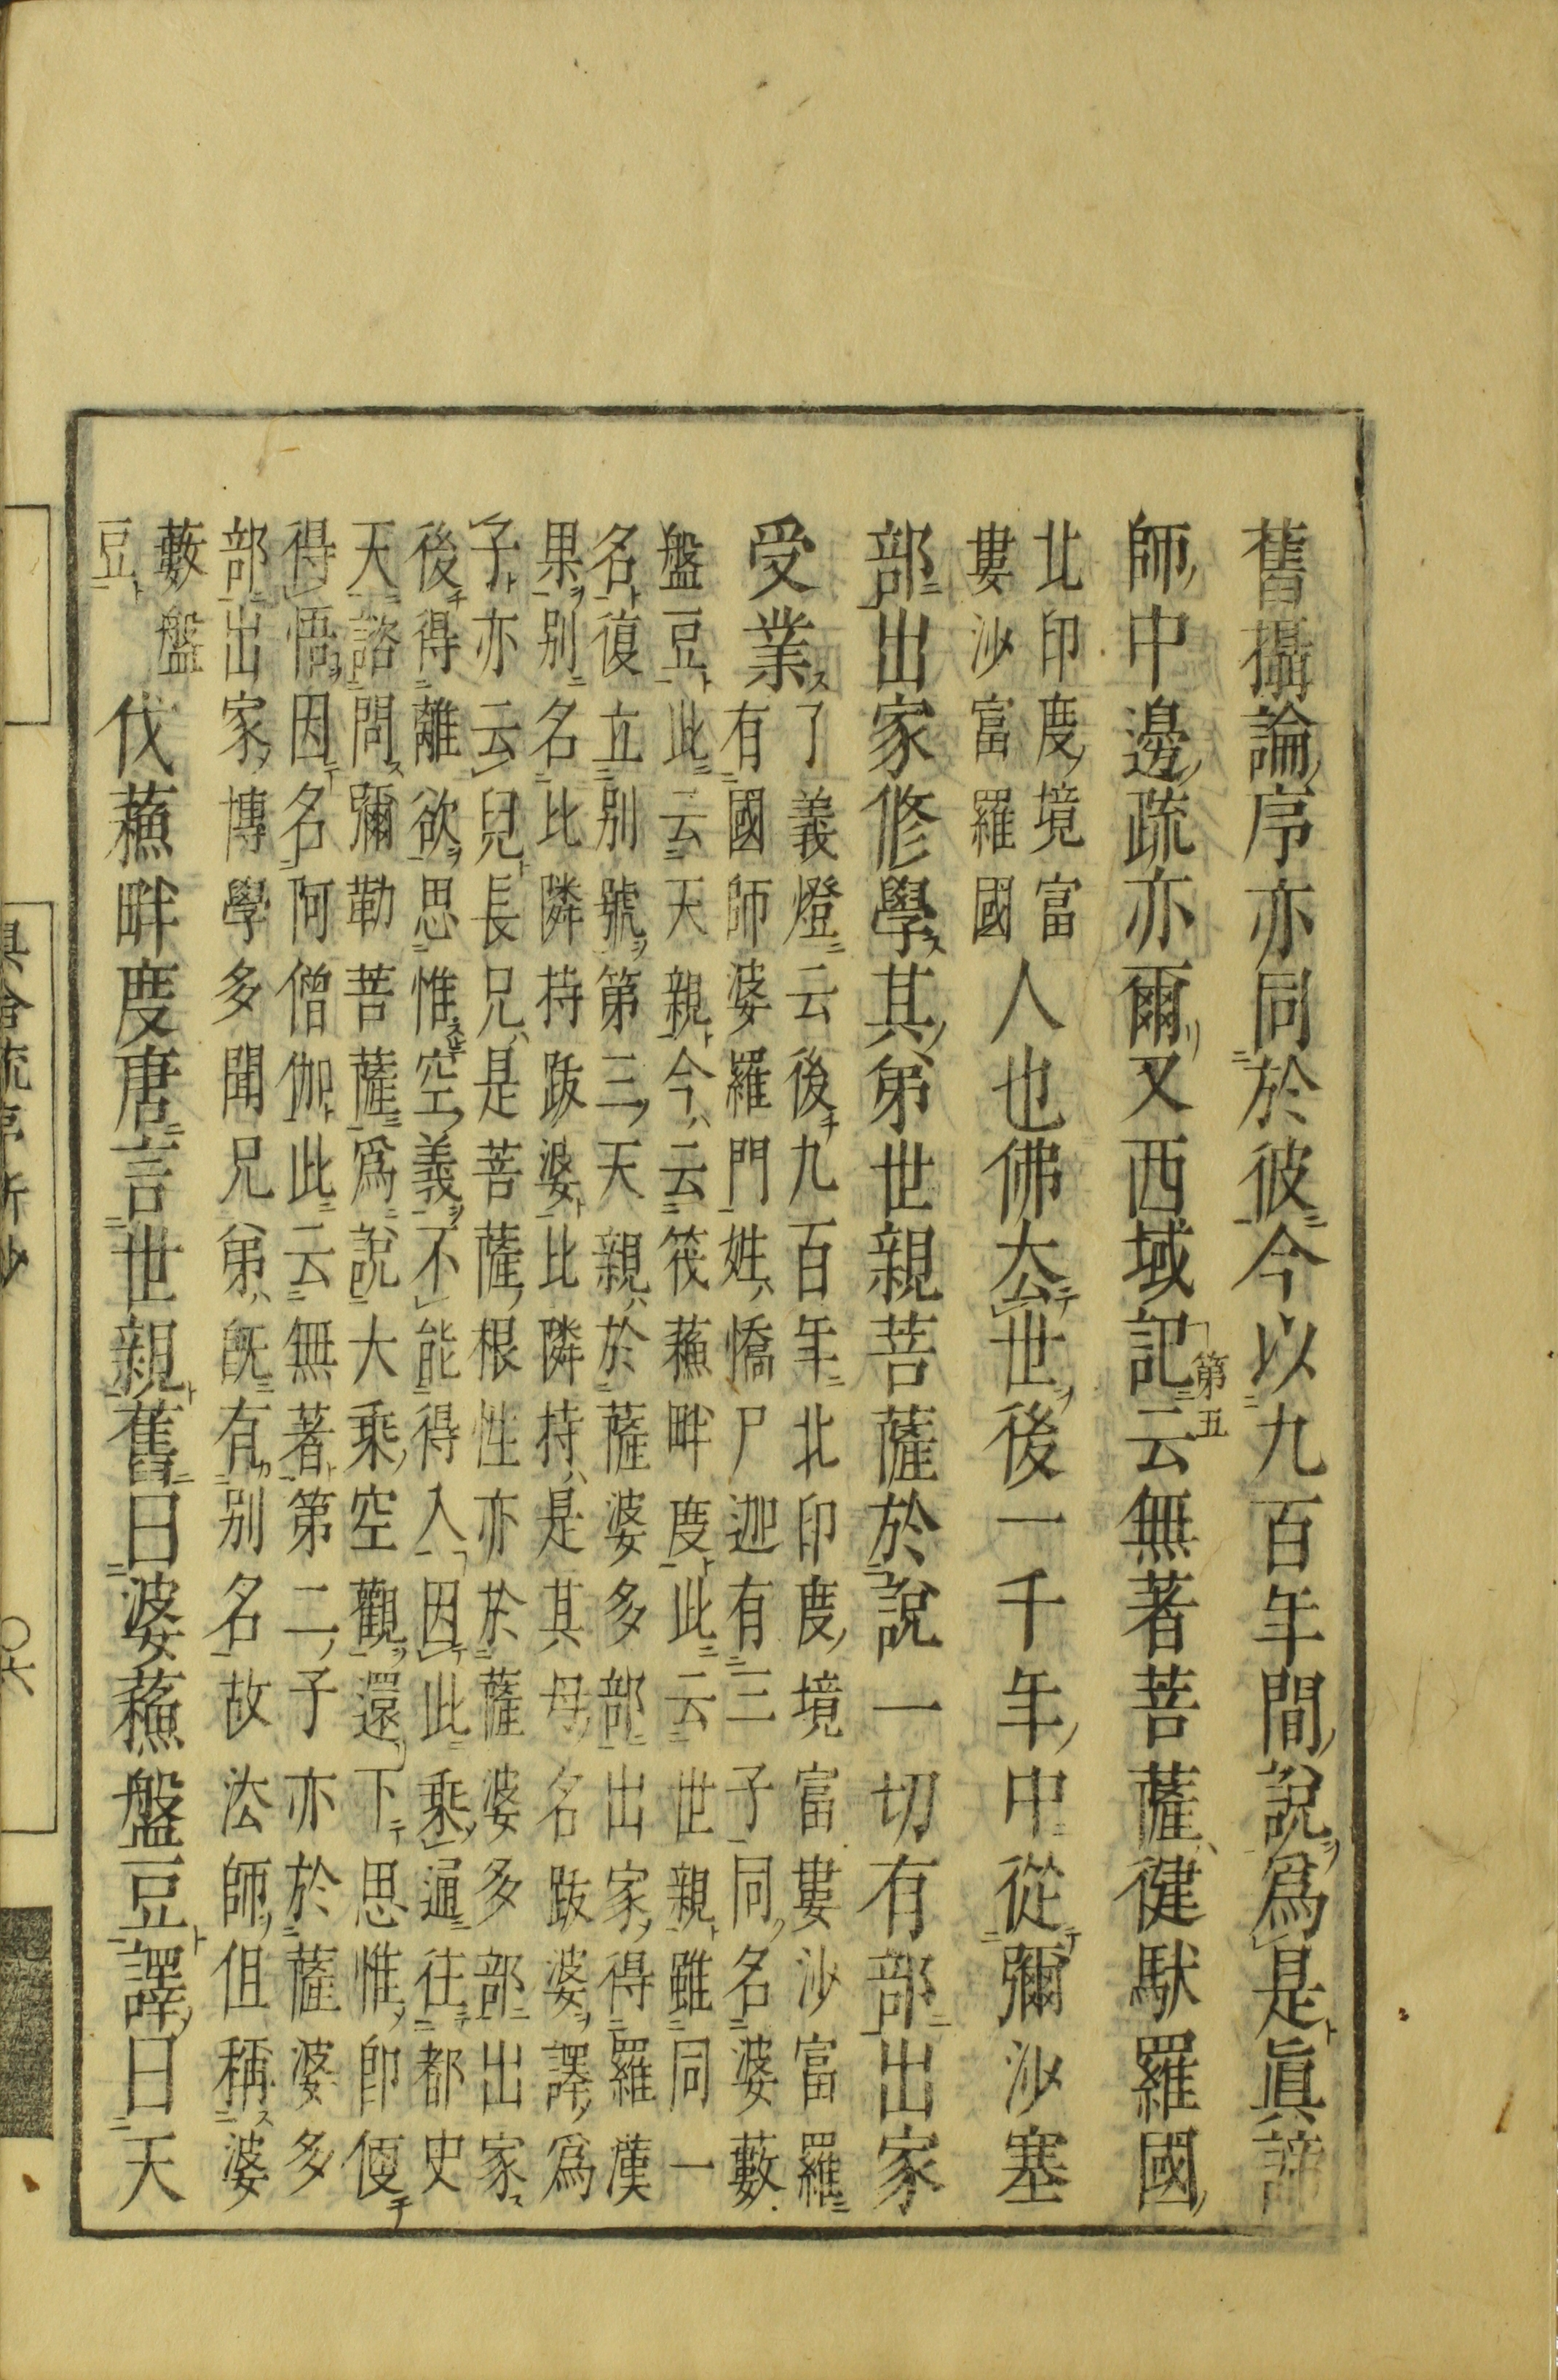 舊攝論序亦同於彼今以九百年間說爲是眞諦
師中邊疏亦爾又西域記第五云無著菩薩健馱羅國
北印度境富
婁沙富羅國
人也佛去世後一千年中從彌沙塞
部出家修學其弟世親菩薩於說一切有部出家
受業
了義燈云後九百年北印度境富婁沙富羅
有國師婆羅門姓憍尸迦有三子同名婆藪
盤豆此云天親今云筏蘓畔度此云世親雖同一
名復立別號第三天親於薩婆多部出家得羅漢
果別名比隣持跋婆比隣持是其母名跋婆譯爲
子亦云兒長兄是菩薩根性亦於薩婆多部出家
後得離欲思惟空義不能得入因此乘通往都史
天諮問彌勒菩薩爲說大乘空觀還下思惟卽便
得悟因名阿僧伽此云無著第二子亦於薩婆多
部出家博學多聞兄弟旣有別名故法師但稱婆
藪盤
豆
伐蘓畔度唐言世親舊曰婆蘓盤豆譯曰天